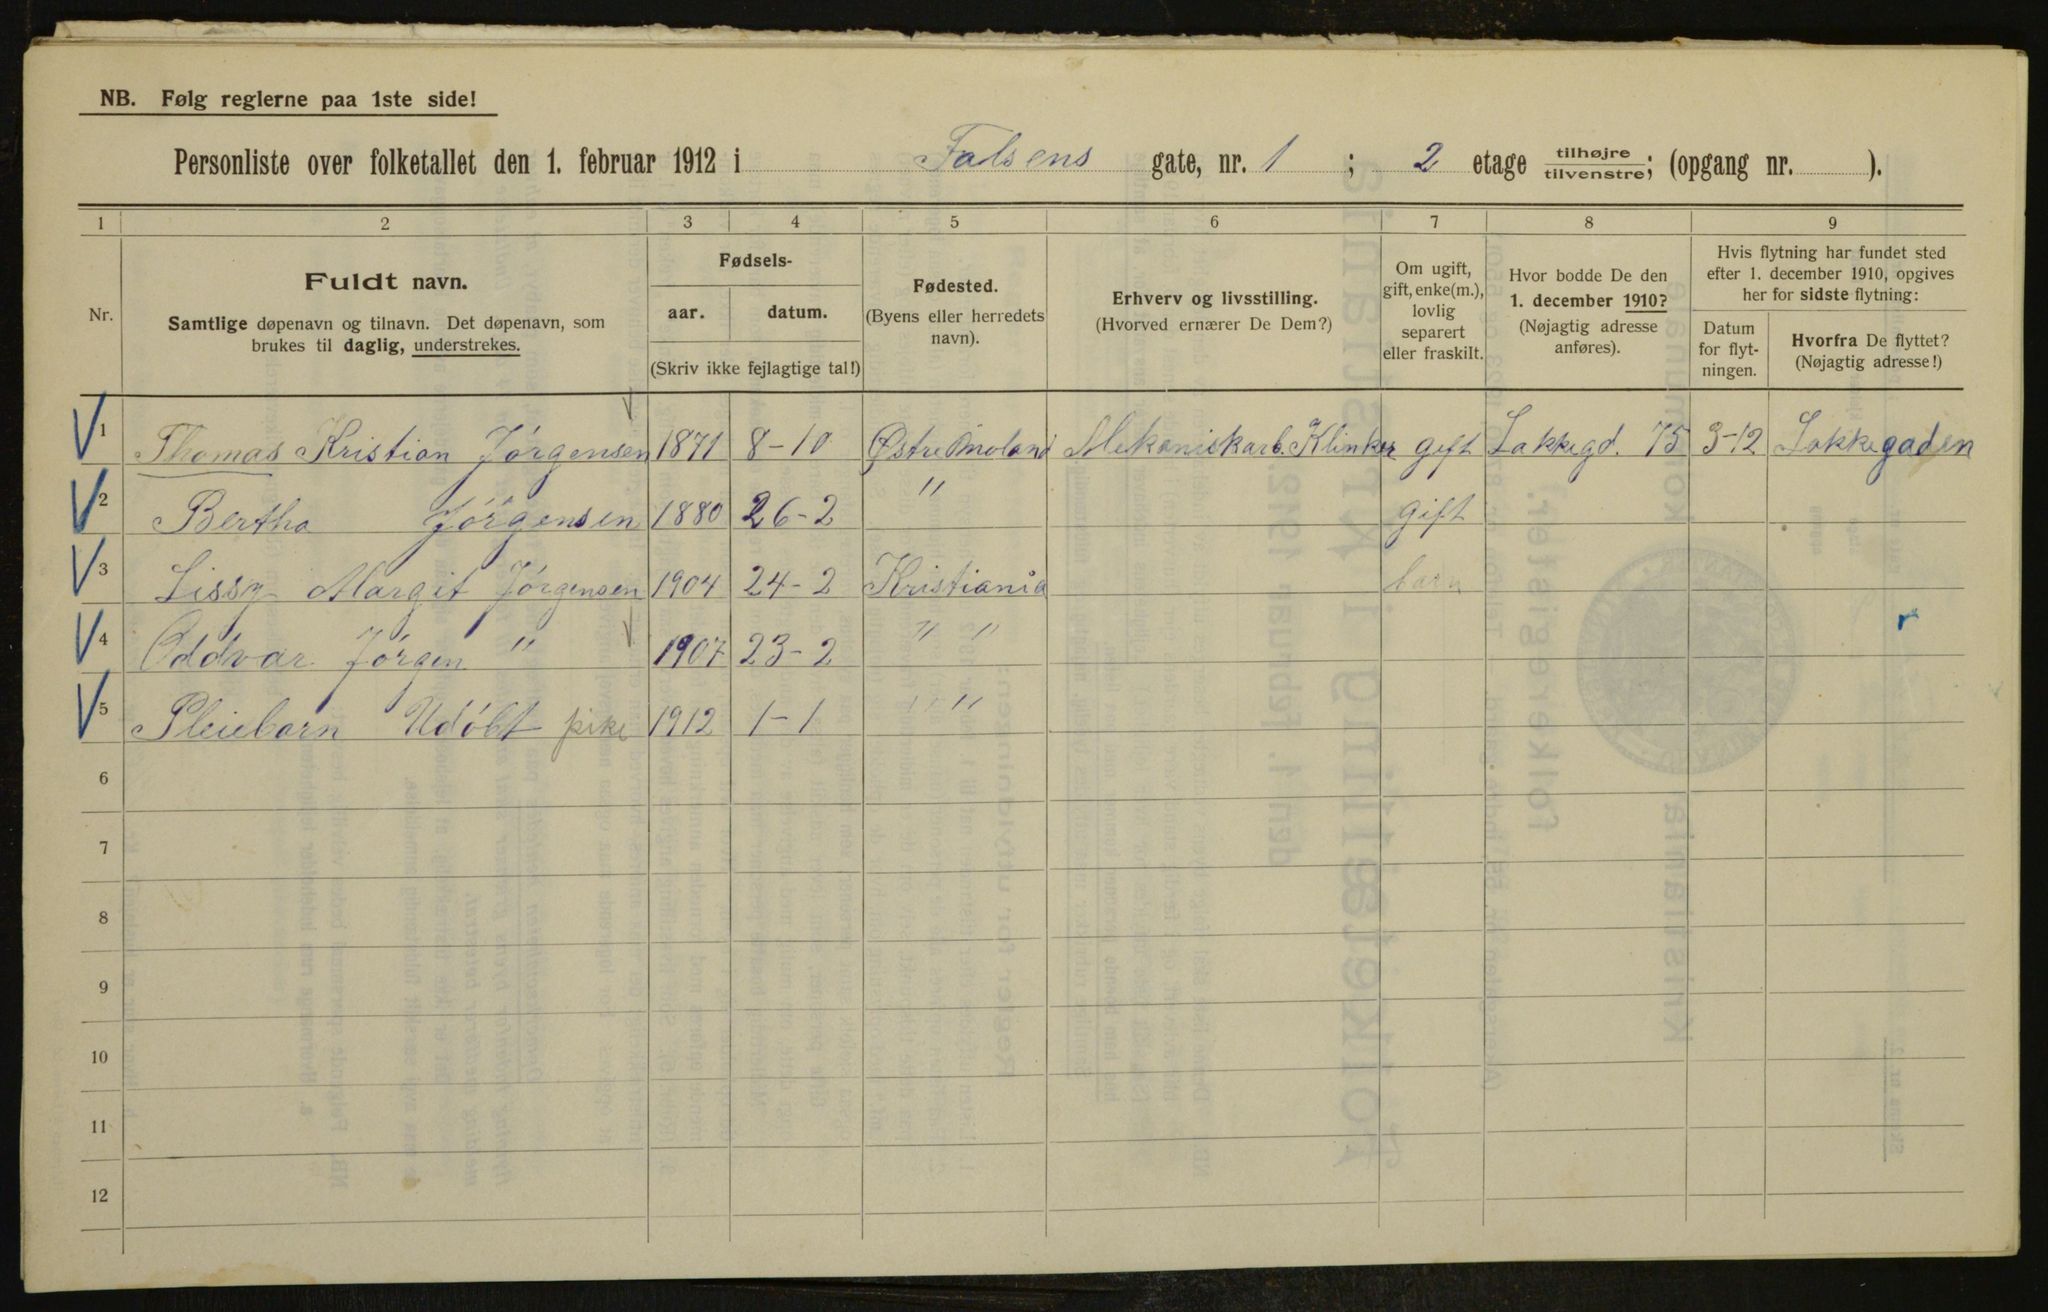 NB. Følg reglerne paa 1ste side!
Personliste over folketallet den 1. februar 1912 i Falsens gate, nr. 1 ; 2 etage tilhøjre tilvenstre; (opgang nr. ).
1 2 3 4 5 6 7 8 9
Nr.
Fuldt navn.
Samtlige døpenavn og tilnavn. Det døpenavn, som
brukes til daglig, understrekes.
Fødsels-
aar. datum.
(Skriv ikke fejlagtige tal!)
Fødested.
(Byens eller herredets
navn).
Erhverv og livsstilling.
(Hvorved ernærer De Dem?)
Om ugift,
gift, enke(m.),
lovlig
separert
eller fraskilt.
Hvor bodde De den
1. december 1910?
(Nøjagtig adresse
anføres).
Hvis flytning har fundet sted
efter 1. december 1910, opgives
her for sidste flytning:
Datum
for flyt-
ningen.
Hvorfra De flyttet?
(Nøjagtig adresse!)
1 Thomas Kristian Jørgensen 1871 8-10 Østre Moland Mekaniskarb. Klinker gift Lakkegd. 75 3-12 Lakkegaden
2 Bertha Jørgensen 1880 26-2 " gift
3 Lissy Margit Jørgensen 1904 24-2 Kristiania barn
4 Oddvar Jørgen " 1907 23-2 " "
5 Pleiebarn Udøbt pike 1912 1-1 " "
6
7
8
9
10
11
12